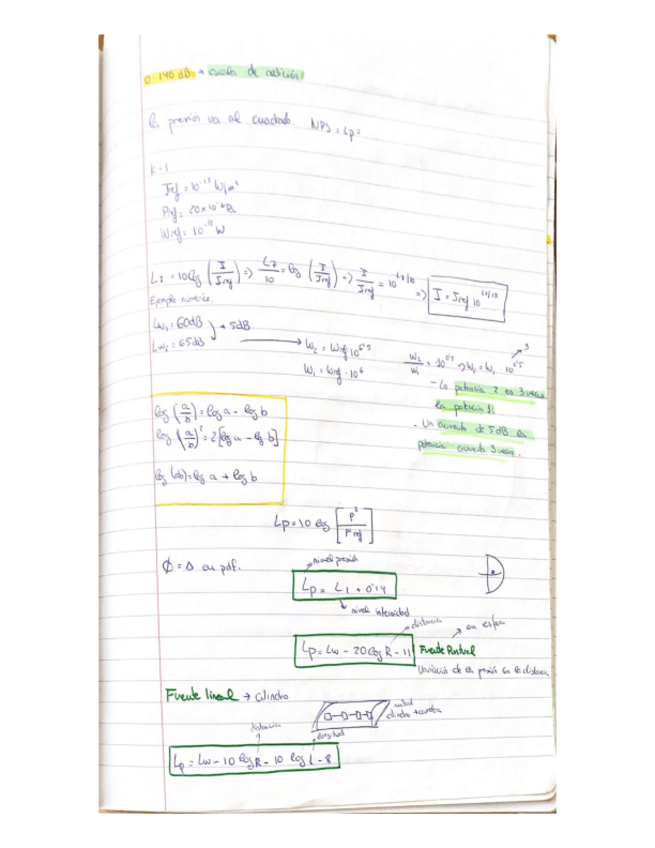 0-140 dB → escala de audición
La presión va al cuadrado. NPS = Lp =
K = 1
Iref = 10⁻¹² W/m²
Pref = 20×10⁻⁶ Pa
Wref = 10⁻¹² W
LI = 10 log (I/Iref) => LI/10 = log (I/Iref) => I/Iref = 10^(LI/10) => I = Iref 10^(LI/10)
Ejemplo numérico.
Lw₁ = 60dB
Lw₂ = 65dB } + 5dB → W₂ = Wref 10^6'5
W₁ = Wref · 10⁶
W₂/W₁ = 10^0'5 => W₂ = W₁ · 10^0'5 → 3
- La potencia 2 es 3 veces la potencia 1.
- Un aumento de 5dB la potencia aumenta 3 veces.
log (a/b) = log a - log b
log (a/b)² = 2 [log a - log b]
log (ab) = log a + log b
Lp = 10 log [P²/P²ref]
Ø = Δ en pdf.
nivel presión
Lp = LI + 0'14
nivel intensidad
distancia
en esfera
Lp = Lw - 20 log R - 11 Fuente Puntual
Variación de la presión con la distancia
Fuente lineal → cilindro
mitad cilindro
distancia
longitud
Lp = Lw - 10 log R - 10 log L - 8